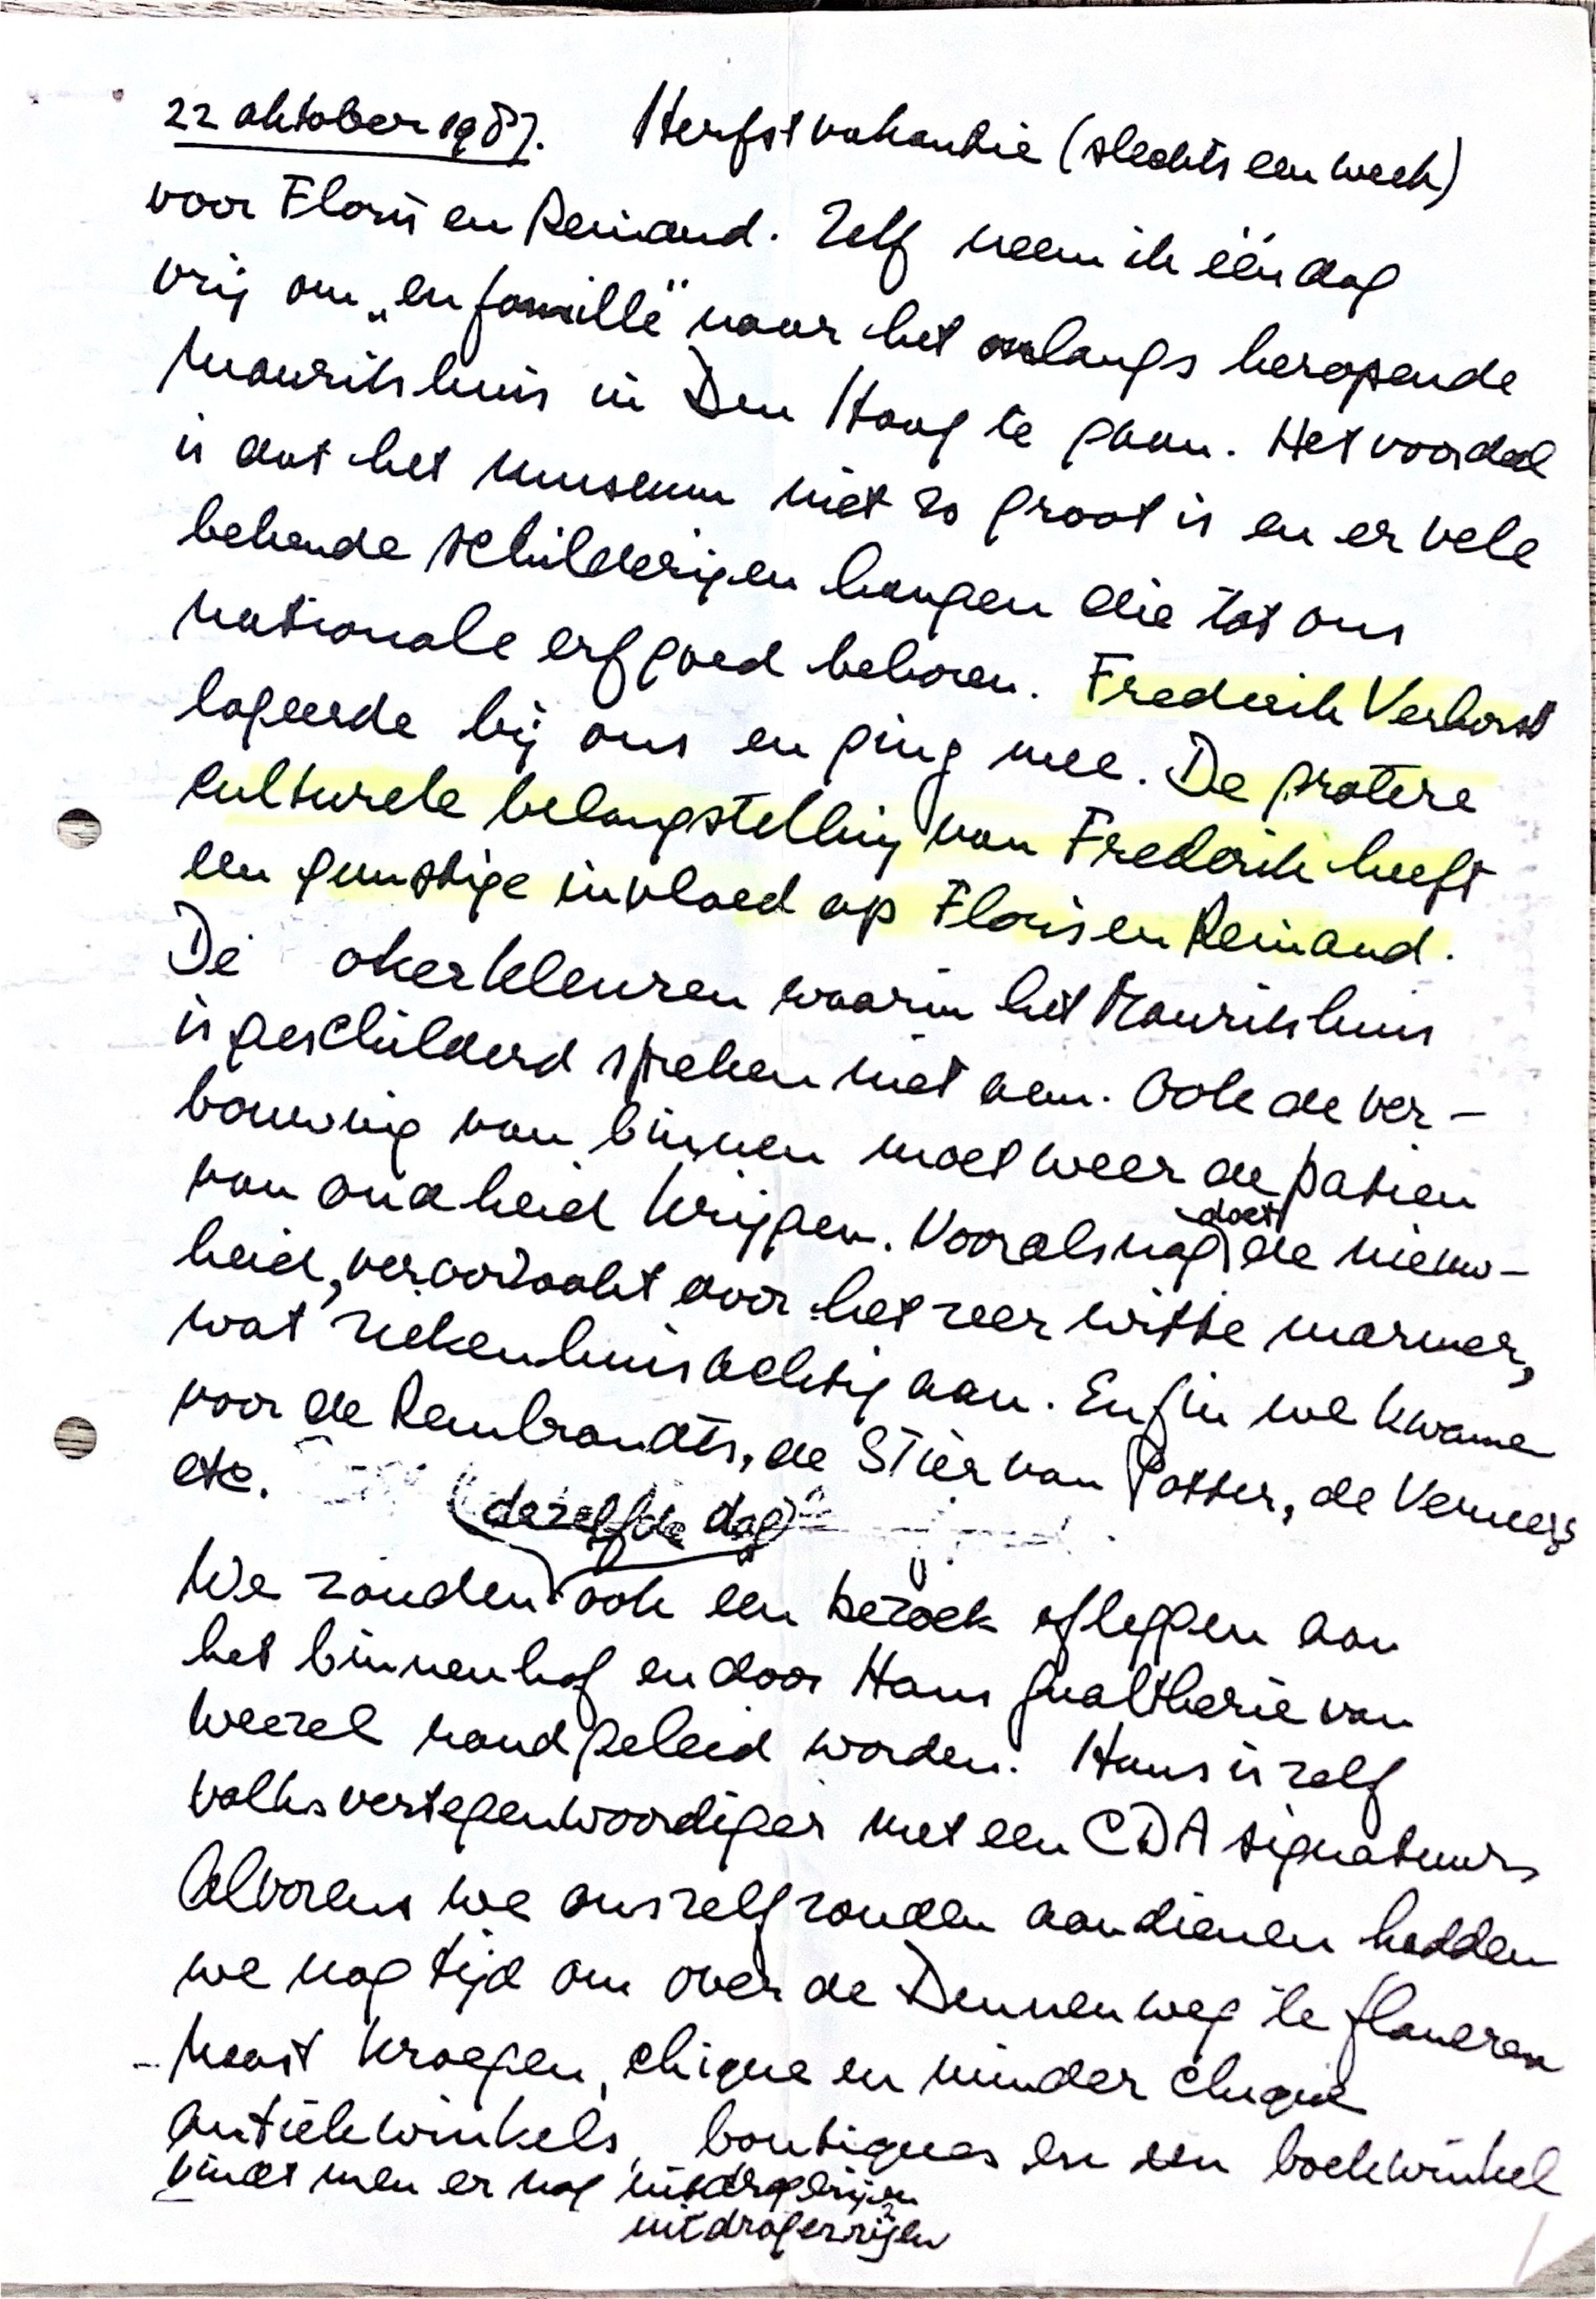 22 oktober 1987. Herfstvakantie (slechts een week)
voor Floris en Reinoud. Zelf neem ik één dag
vrij om „en famille" naar het onlangs heropende
Mauritshuis in Den Haag te gaan. Het voordeel
is dat het museum niet zo groot is en er vele
bekende schilderijen hangen die tot ons
nationale erfgoed behoren. Frederik Verhorst
logeerde bij ons en ging mee. De grotere
culturele belangstelling van Frederik heeft
een gunstige invloed op Floris en Reinoud.
De okerkleuren waarin het Mauritshuis
is geschilderd spreken niet aan. Ook de ver-
bouwing van binnen moet weer de patien
van oudheid krijgen. Vooralsnog doet de nieuw-
heid, veroorzaakt door het zeer witte marmer,
wat ziekenhuisachtig aan. Enfin we kwamen
voor de Rembrandts, de Stier van Potter, de Vermeers
etc.
(dezelfde dag)
We zouden ook een bezoek afleggen aan
het binnenhof en door Hans Gualtherie van
Weezel rondgeleid worden. Hans is zelf
volksvertegenwoordiger met een CDA signatuur.
Alvorens we onszelf zouden aandienen hadden
we nog tijd om over de Dennenweg te flaneren
- Naast kroegen, chique en minder chique
antiekwinkels, boutiques en een boekwinkel
vindt men er nog uitdragerijen
uitdragerrijen